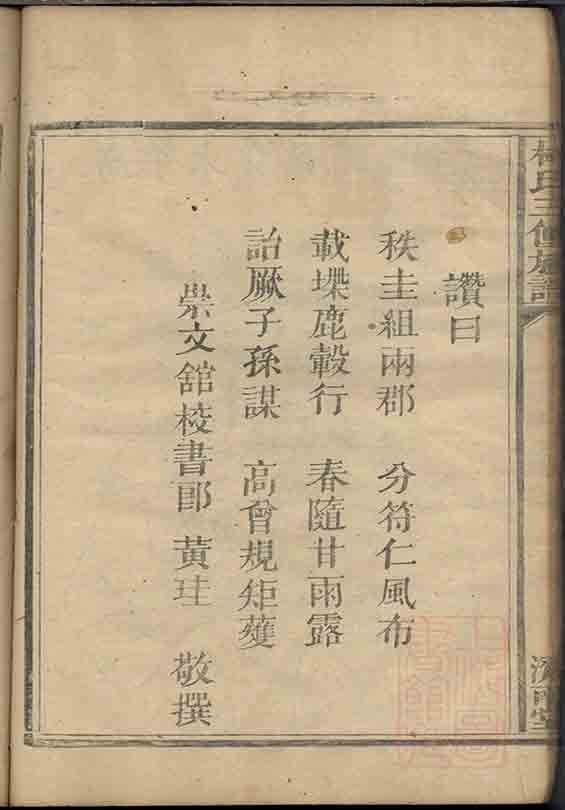 讚曰
秩圭組兩郡　分符仁風布
載堞鹿轂行　春隨甘雨露
詒厥子孫謀　高曾規矩蒦
崇文舘校書郎　黃珪　敬撰
氏三修族譜
堂